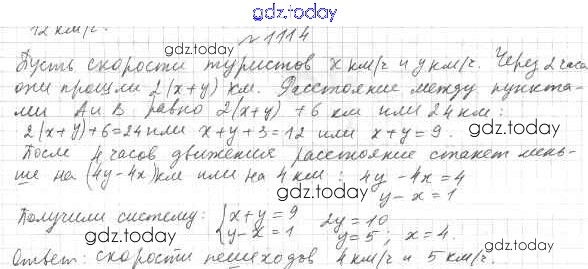 gdz.today
12 км/г.
№ 1114
gdz.today
Пусть скорости туристов x км/г и y км/г. Через 2 часа
они прошли 2(x+y) км. Расстояние между пункта-
gdz.today
ми A и B равно 2(x+y) + 6 км или 24 км:
gdz.today
2(x+y)+6=24 или x+y+3=12 или x+y=9.
gdz.today
После 4 часов движения расстояние станет мень-
gdz.today
ше на (4y-4x) км или на 4 км: 4y-4x=4
y-x=1
gdz.today
Получили систему: { x+y=9 2y=10
y-x=1 y=5; x=4.
gdz.today
gdz.today
Ответ: скорости пешеходов 4 км/г и 5 км/г.